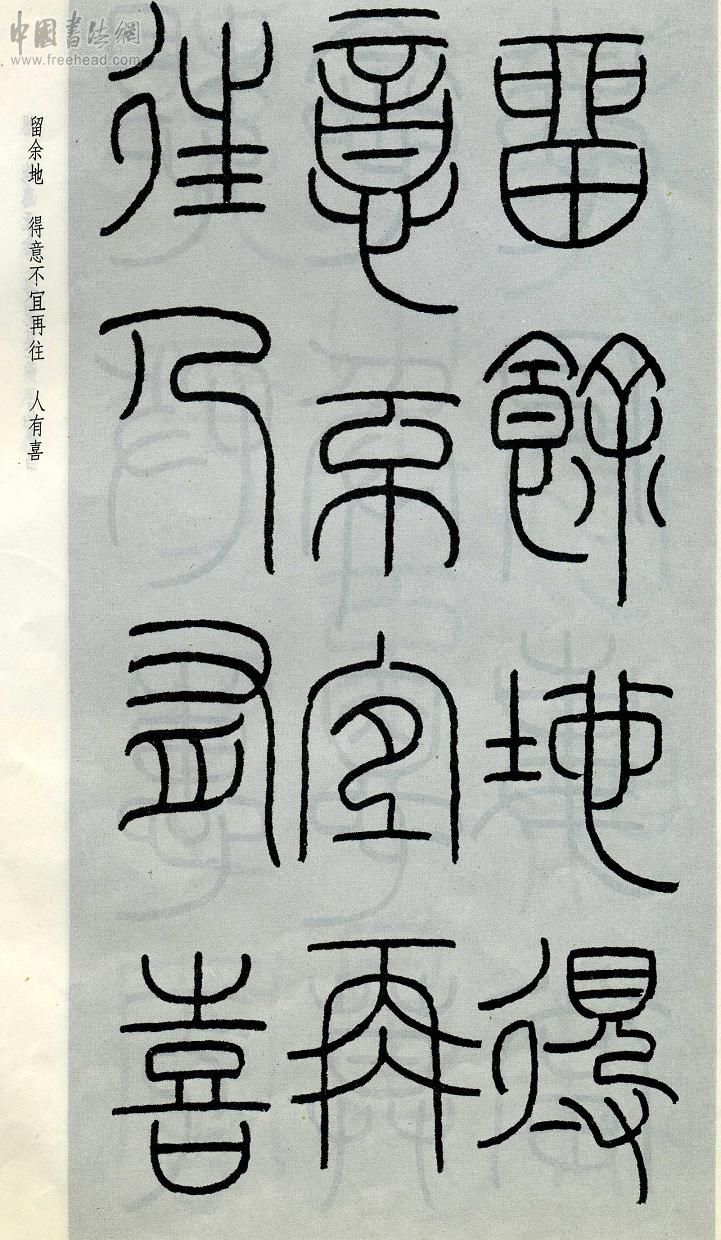 留餘地得
意不宜再
往人有喜
留余地 得意不宜再往 人有喜
中國書法網
www.freehead.com